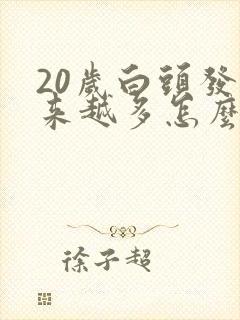 20歲白頭發
來越多怎麼
徐子超